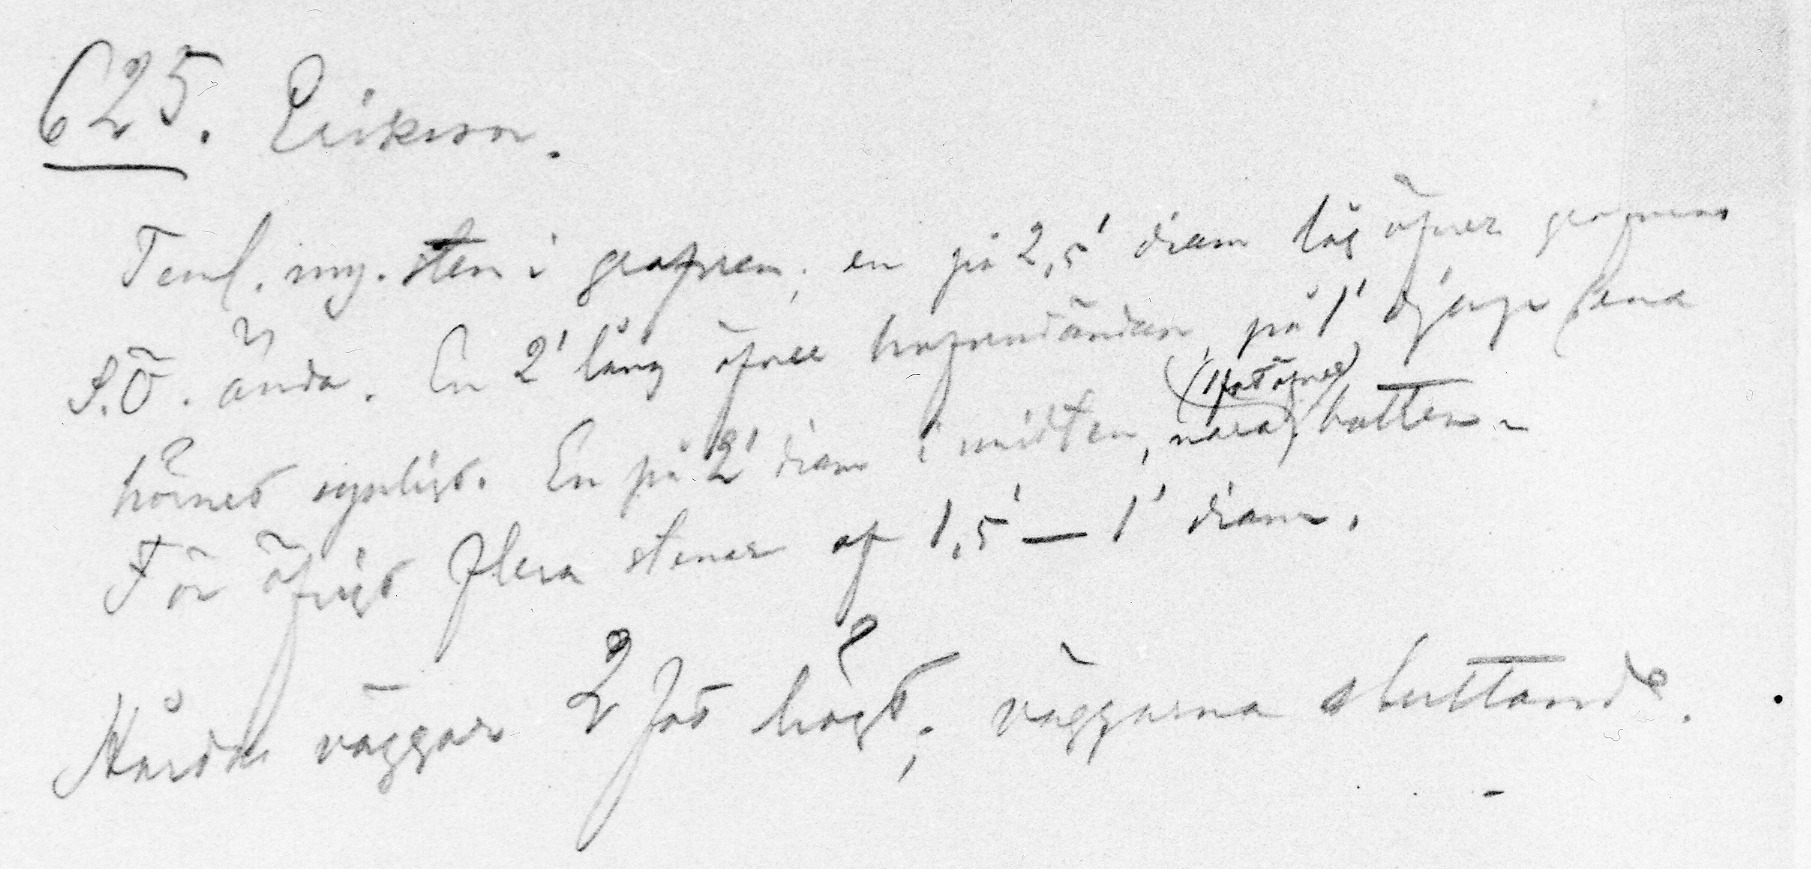 625. Erikson.
Teml. my. sten i grafven; en på 2,5' diam låg öfver grafvens
S.Ö. ända. En 2' lång öfver hufvudändan, på 1' djup (ena
(1 fot öfver)
hörnet synligt. En på 2' diam i midten, nära botten.
För öfrigt flera stenar af 1,5' — 1' diam.
Hårda väggar 2 fot högt; väggarna sluttande.